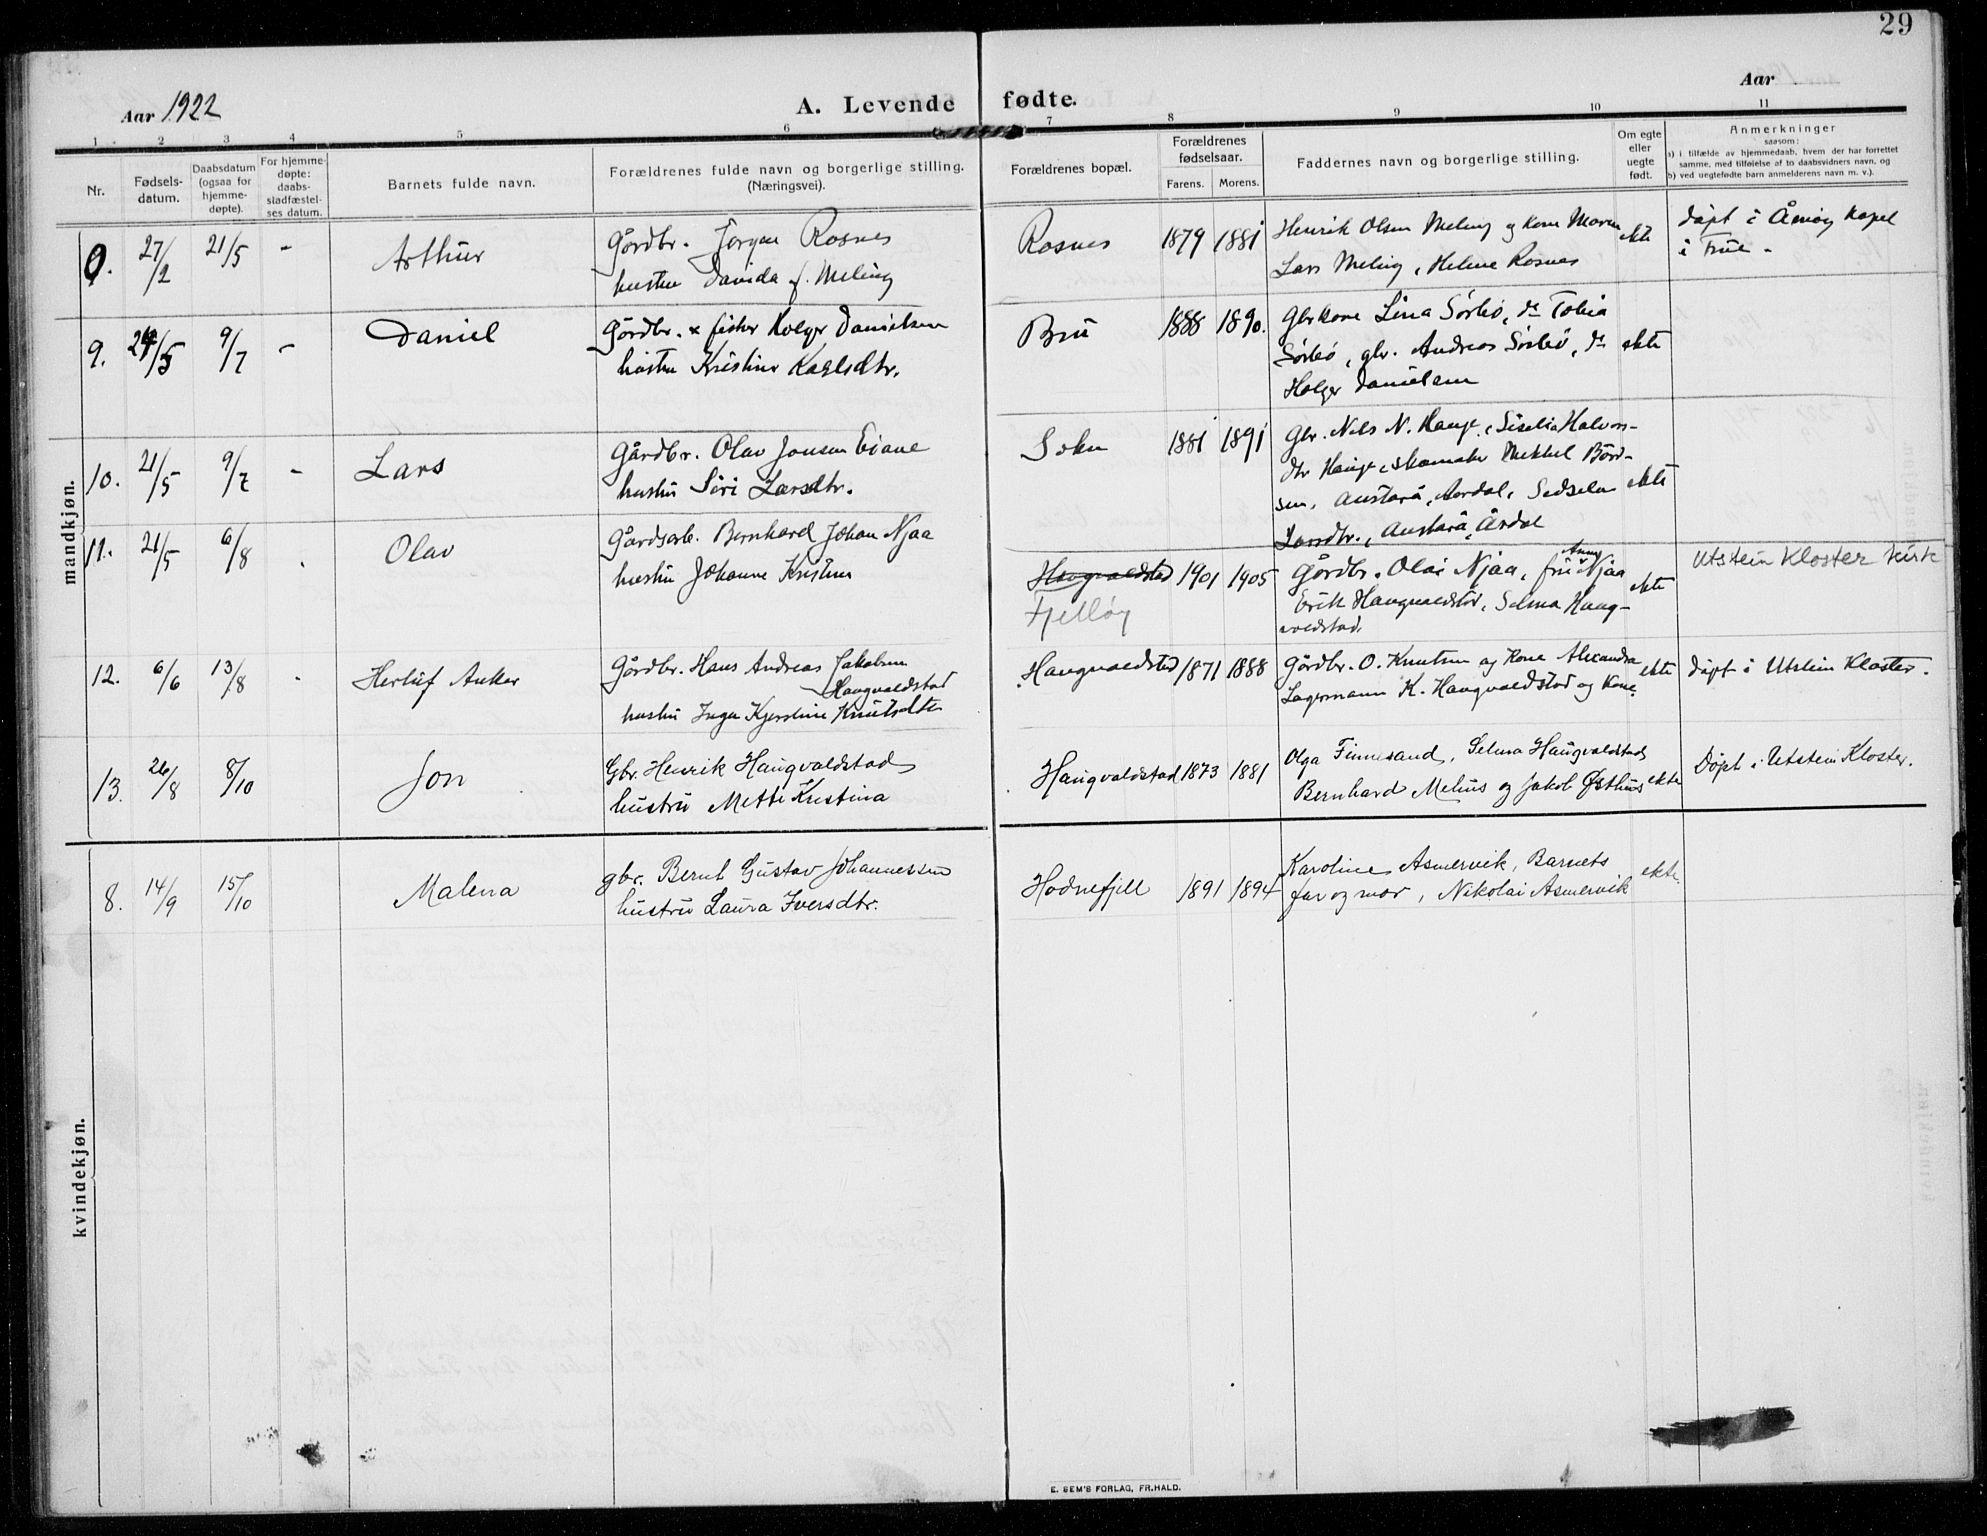 29
Aar 1922
A. Levende fødte.
Aar
1 2 3 4 5 6 7 8 9 10 11
Nr.
Fødsels-
datum.
Daabsdatum
(ogsaa for
hjemme-
døpte).
For hjemme-
døpte:
daabs-
stadfæstel-
ses datum.
Barnets fulde navn.
Forældrenes fulde navn og borgerlige stilling.
(Næringsvei).
Forældrenes bopæl.
Forældrenes
fødselsaar.
Farens. Morens.
Faddernes navn og borgerlige stilling.
Om egte
eller
uegte
født.
Anmerkninger
saasom:
a) i tilfælde av hjemmedaab, hvem der har forrettet
samme, med tilføielse af to daabsvidners navn, og
b) ved uegtefødte barn anmelderens navn m. v.).
mandkjøn.
0. 27/2 21/5 - Arthur
Gårdbr. Jørgen Rosnes
hustru Davida f. Meling
Rosnes 1879 1881
Henrik Olsen Meling og kone Maren
Lars Meling, Helene Rosnes
ekte
døpt i Åmøy Kapel
i Frue -
9. 24/5 9/7 - Daniel
Gårdbr. & fisker Holger Danielsen
hustru Kristine Karlsdtr.
Bru 1888 1890.
Gbrkone Lina Sørbø, do Tobia
Sørbø, gbr. Andreas Sørbø, do
Holger Danielsen
ekte
10. 21/5 9/7 - Lars
Gårdbr. Olav Jonsen Eiane
hustru Siri Larsdtr.
Sokn 1881 1891
Gbr. Nels N. Hauge, Siselia Halvors-
dtr Hauge, skomaker Mikkel Bård-
sen, Austarå, Aardal, Sedselen
Larsdtr., Austarå, Årdal
ekte
11. 21/5 6/8 . Olav
Gårdsarb. Bernhard Johan Njaa
hustru Johanne Kristine
Haugvaldstad 1901 1905
Fjelløy
Gårdbr. Olai Njaa, frue Anny Njaa
Erik Haugvaldstad, Selma Haug-
valdstad.
ekte
Utstein Kloster kirk
12. 6/6 13/8 - Herluf Anker
Gårdbr. Hans Andreas Jakobsen
Haugvaldstad
hustru Inga Kjerstine Knutsdtr
Haugvaldstad 1871 1888
Gårdbr. O. Knutsen og Kone Alexandra
Lagermann K. Haugvaldstad og Kone
ekte
døpt i Utstein Kloster.
13. 26/8 8/10 Jon
Gbr. Henrik Haugvaldstad
hustru Mette Kristina
Haugvaldstad 1873 1881
Olga Finnesand, Selma Haugvaldstad
Bernhard Melhus og Jakob Østhus
ekte
Døpt i Utstein Kloster.
kvindekjøn.
8. 14/9 15/10 Malena
gbr. Bernt Gustav Johannessen
hustru Laura Iversdtr.
Hodnefjell 1891 1894
Karoline Asmervik, Barnets
far og mor, Nikolai Asmervik
ekte.
E. SEM'S FORLAG, FR.HALD.